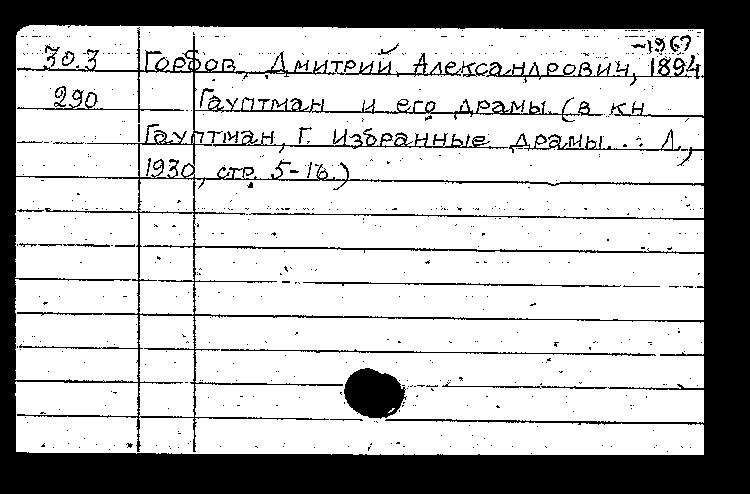 -1967
30.3 Горбов, Дмитрий Александрович, 1894
290 Гауптман и его драмы (в кн
Гауптман, Г. Избранные драмы. : Л.,
1930, стр. 5-18.)